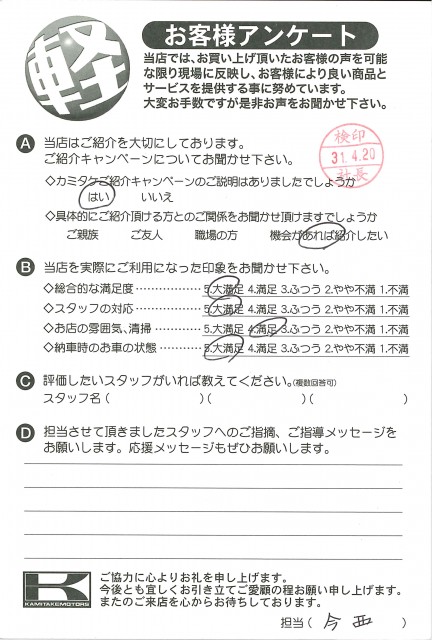 軽
お客様アンケート
当店では、お買い上げ頂いたお客様の声を可能
な限り現場に反映し、お客様により良い商品と
サービスを提供する事に努めています。
大変お手数ですが是非お声をお聞かせ下さい。
A 当店はご紹介を大切にしております。
ご紹介キャンペーンについてお聞かせ下さい。
検印
31.4.20
社長
◇カミタケご紹介キャンペーンのご説明はありましたでしょうか
はい いいえ
◇具体的にご紹介頂ける方とのご関係をお聞かせ頂けますでしょうか
ご親族 ご友人 職場の方 機会があれば紹介したい
B 当店を実際にご利用になった印象をお聞かせ下さい。
◇総合的な満足度 ……………… 5.大満足 4.満足 3.ふつう 2.やや不満 1.不満
◇スタッフの対応 ……………… 5.大満足 4.満足 3.ふつう 2.やや不満 1.不満
◇お店の雰囲気、清掃 ………… 5.大満足 4.満足 3.ふつう 2.やや不満 1.不満
◇納車時のお車の状態 ………… 5.大満足 4.満足 3.ふつう 2.やや不満 1.不満
C 評価したいスタッフがいれば教えてください。(複数回答可)
スタッフ名( )( )( )
D 担当させて頂きましたスタッフへのご指摘、ご指導メッセージを
お願いします。応援メッセージもぜひお願いします。
K
KAMITAKEMOTORS
ご協力に心よりお礼を申し上げます。
今後とも宜しくお引き立てご愛顧の程お願い申し上げます。
またのご来店を心からお待ちしております。
担当( 今西 )